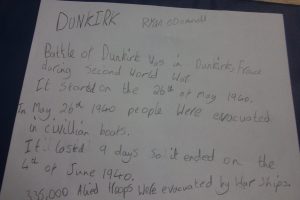 DUNKIRK Ryan o Donnell
Battle of Dunkirk Was in Dunkirk, France
during Second World War
It Started on the 26th of May 1940.
In May 26th 1940 people were evacuated
in civillian boats.
It lasted 9 days so it ended on the
4th of June 1940.
335,000 Alied troops were evacuated by War Ships.